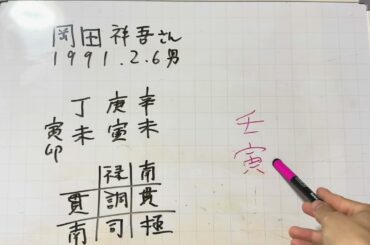 岡田祥吾さん
1991.2.6男
丁庚辛
寅卯 未寅未
禄南
貫調貫
南司極
壬寅